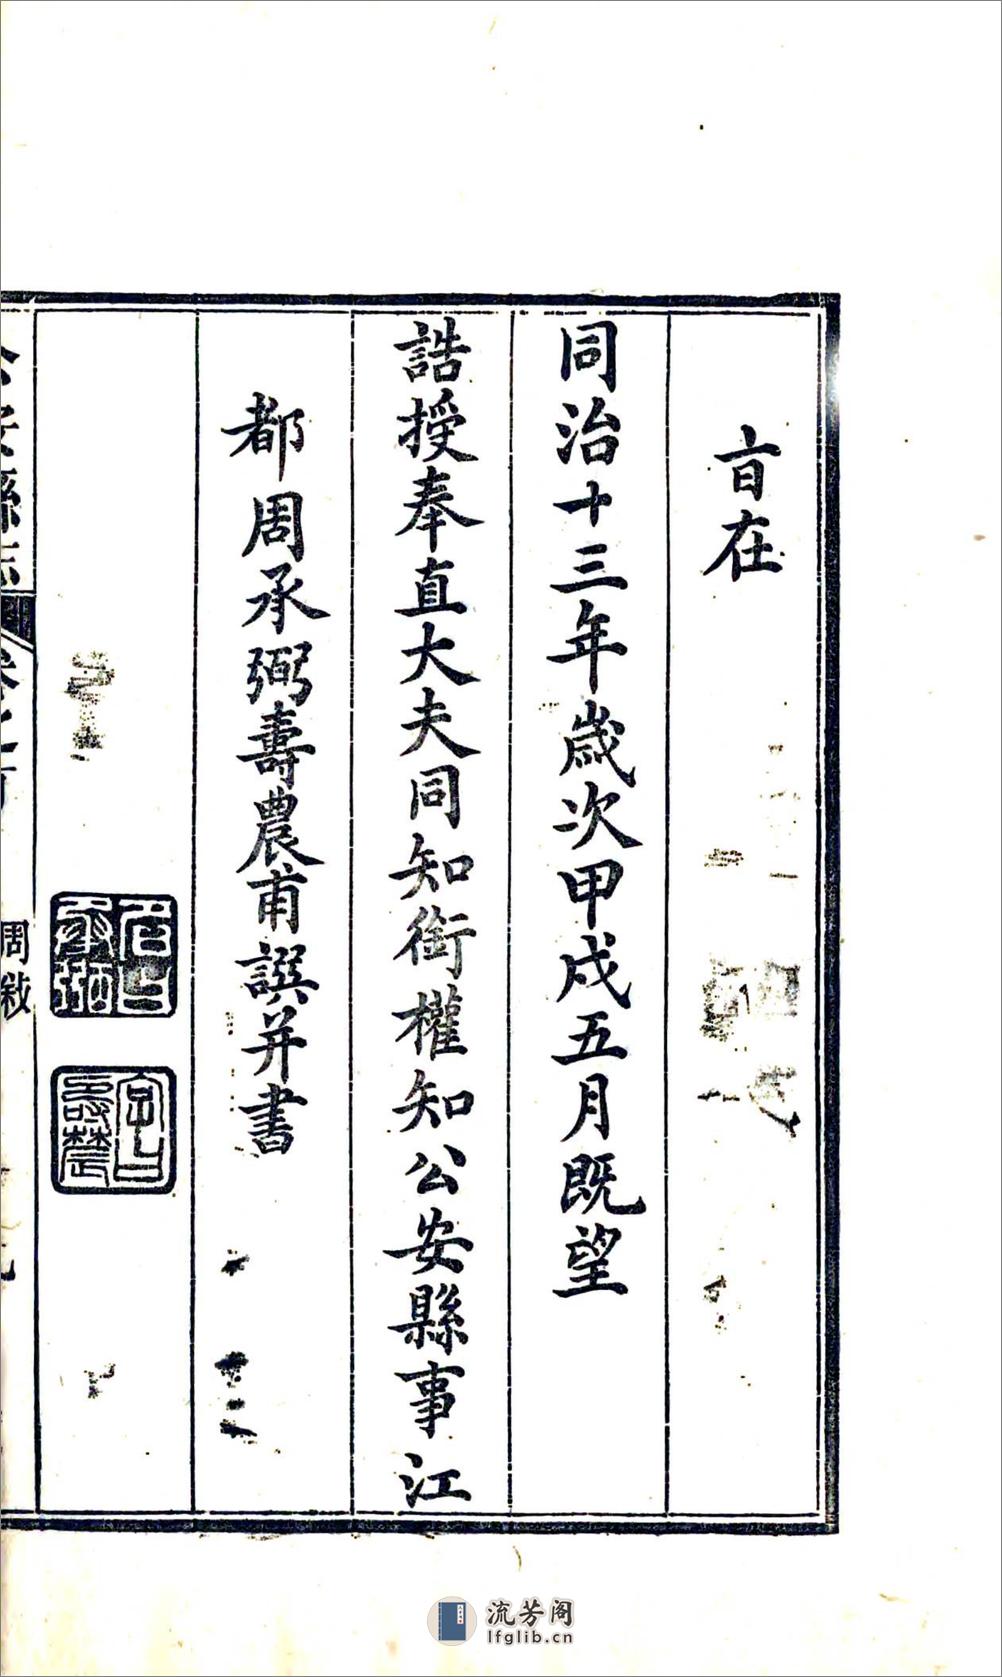 㫖在
同治十三年歲次甲戌五月既望
誥授奉直大夫同知銜權知公安縣事江
都周承弼壽農甫譔并書
字曰壽農
公安縣志
卷之首
周敘
流芳阁
lfglib.cn